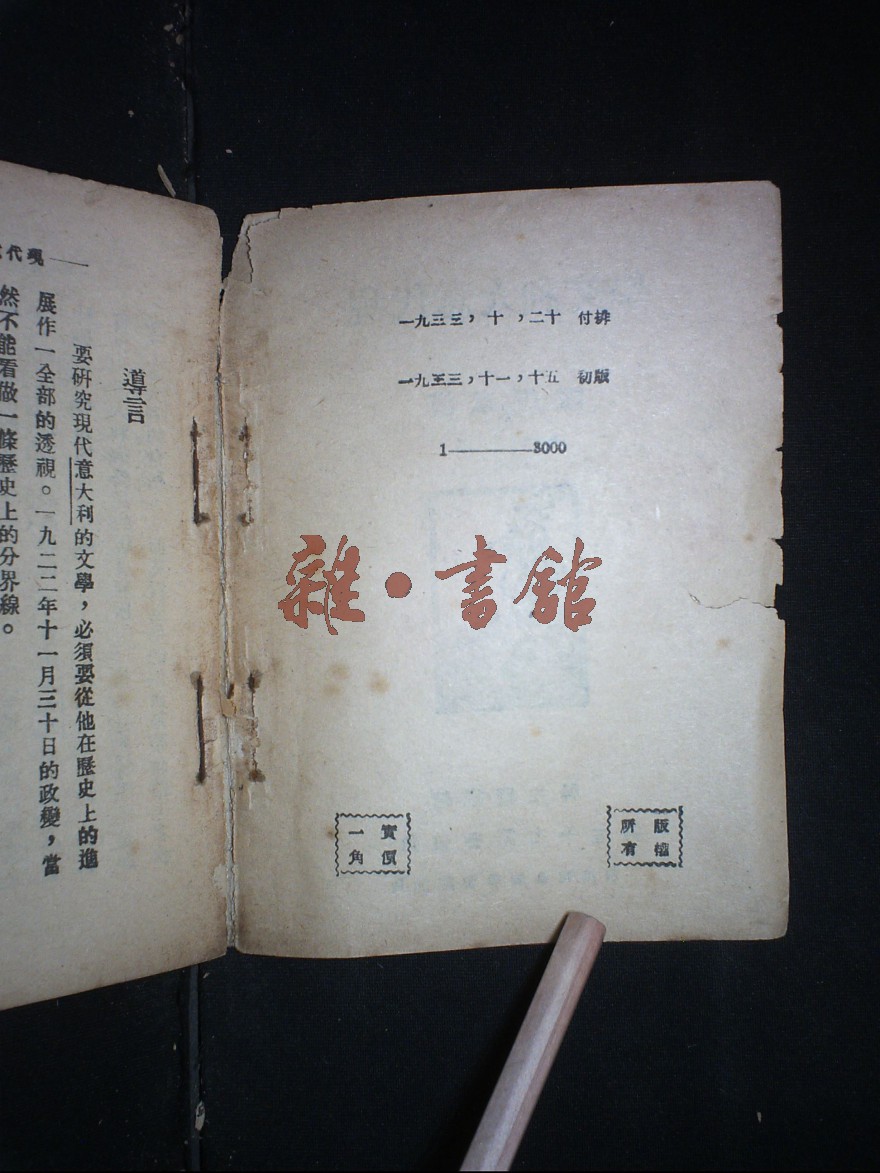 一九三三，十，二十　付排
一九三三，十一，十五　初版
1————3000
雜·書館
版權
所有
實價
一角
——現代
導言
要研究現代意大利的文學，必須要從他在歷史上的進
展作一全部的透視。一九二二年十一月三十日的政變，當
然不能看做一條歷史上的分界線。